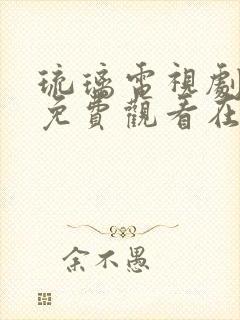 琉璃電視劇
免費觀看在
余不愚